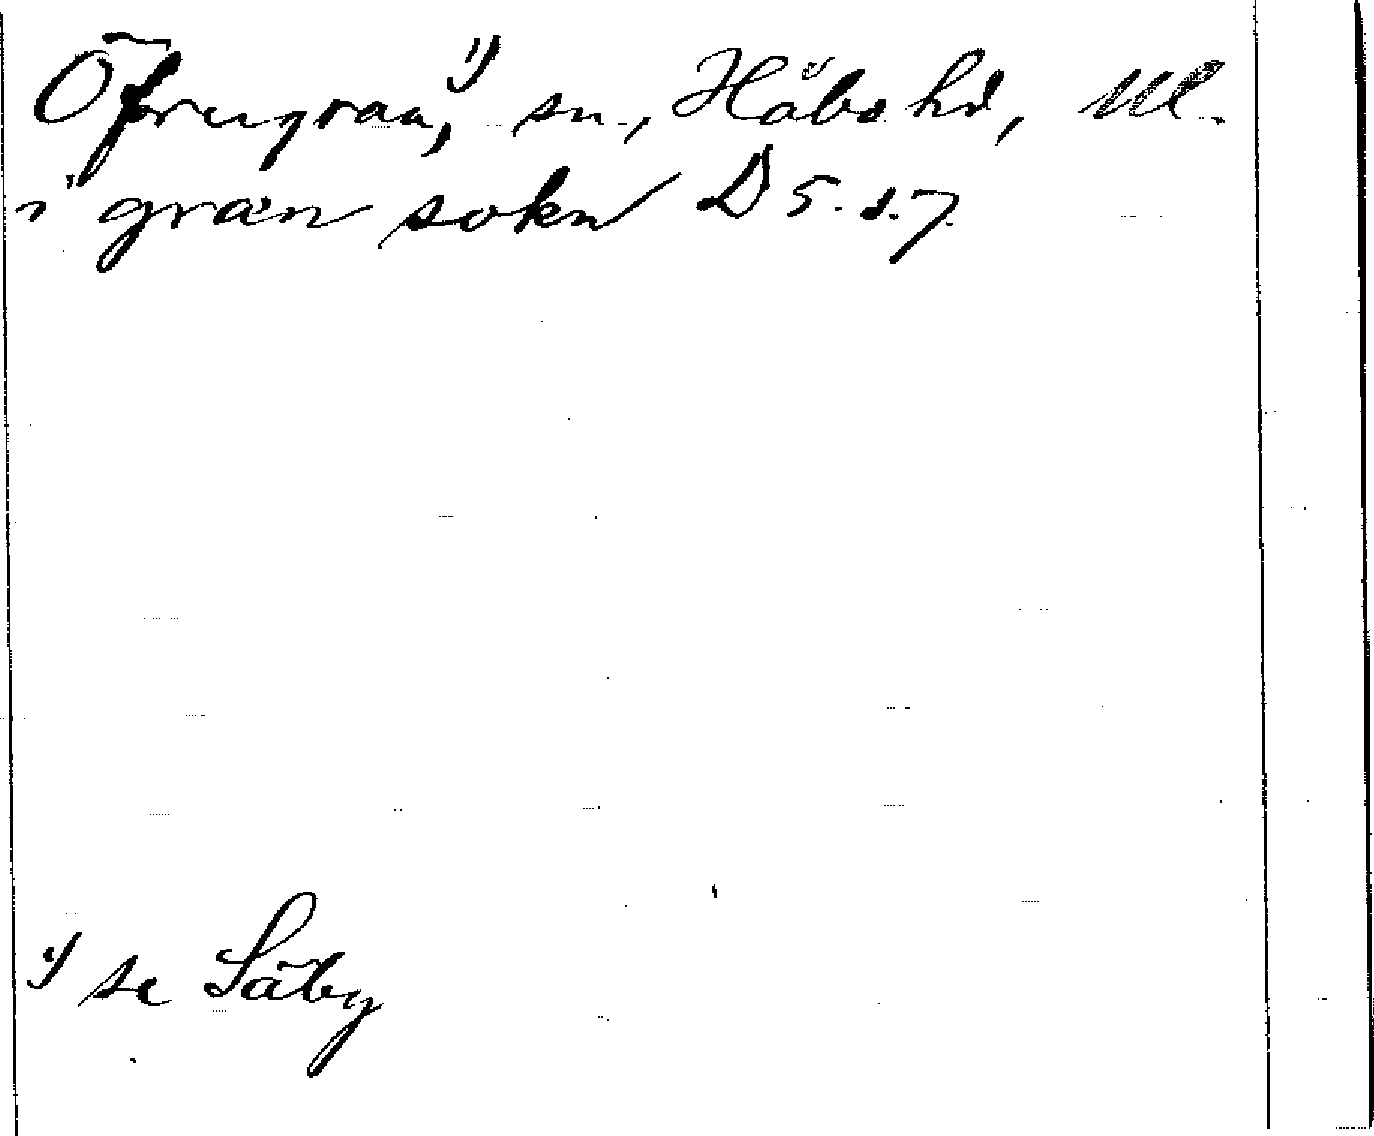 Öfvergran,¹⁾ sn., Håbo hd, Upl.
i gran sokn D 5. s. 7.
¹⁾ se Säby